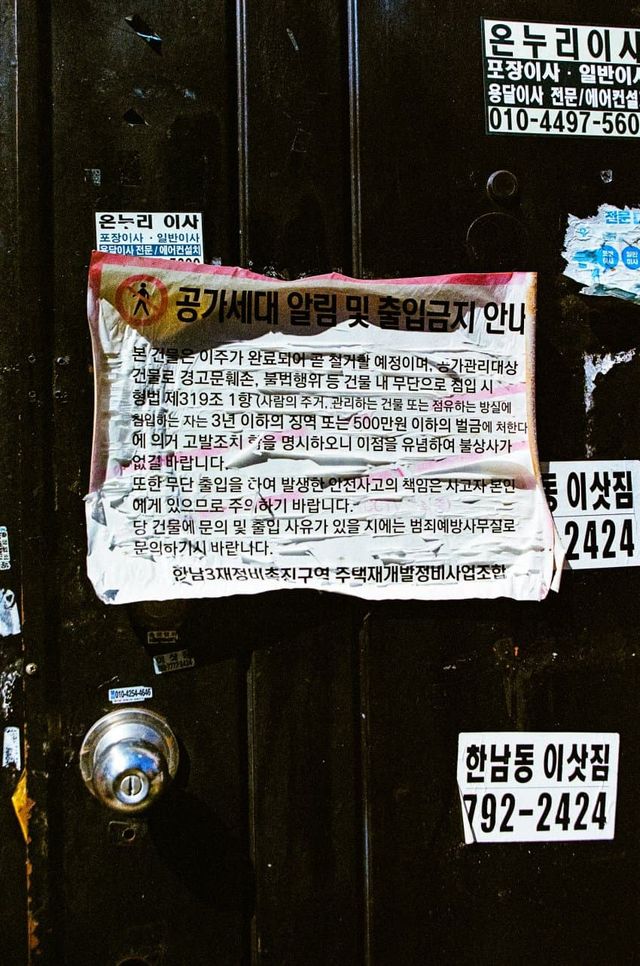 온누리이사
포장이사 · 일반이사
용달이사 전문/에어컨설
010-4497-560
온누리 이사
포장이사 · 일반이사
용달이사 전문/에어컨설치
전문
공가세대 알림 및 출입금지 안내
본 건물은 이주가 완료되어 곧 철거할 예정이며, 공가관리대상
건물로 경고문훼손, 불법행위 등 건물 내 무단으로 침입 시
형법 제319조 1항 (사람의 주거, 관리하는 건물 또는 점유하는 방실에
침입하는 자는 3년 이하의 징역 또는 500만원 이하의 벌금에 처한다
에 의거 고발조치 함을 명시하오니 이점을 유념하여 불상사가
없길 바랍니다.
또한 무단 출입을 하여 발생한 안전사고의 책임은 사고자 본인
에게 있으므로 주의하기 바랍니다.
당 건물에 문의 및 출입 사유가 있을 시에는 범죄예방사무실로
문의하가시 바랍니다.
한남3재정비촉진구역 주택재개발정비사업조합
동 이삿짐
2424
010-4254-4646
한남동 이삿짐
792-2424